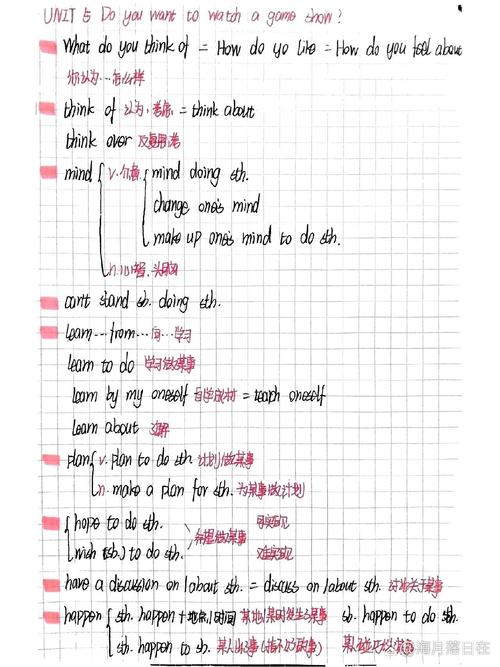 UNIT 5 Do you want to watch a game show?
What do you think of = How do yo like = How do you feel about
你认为…怎么样
think of 认为,考虑 = think about
think over 反复思考
mind v.介意 mind doing sth.
change one's mind
make up one's mind to do sth.
n.心智,头脑
can't stand sb. doing sth.
learn…from…向…学习
learn to do 学习做某事
learn by my oneself 自学成材 = teach oneself
learn about 了解
plan v. plan to do sth 计划做某事
n. make a plan for sth. 为某事做计划
hope to do sth. 可实现
希望做某事
wish (sb.) to do sth. 难实现
have a discussion on/about sth. = discuss on/about sth. 讨论关于某事
happen sth. happen+地点/时间 某地/某时发生了某事 sb. happen to do sth.
sth. happen to sb. 某人出了事(指不好的事) 某人碰巧做某事
海月落日在